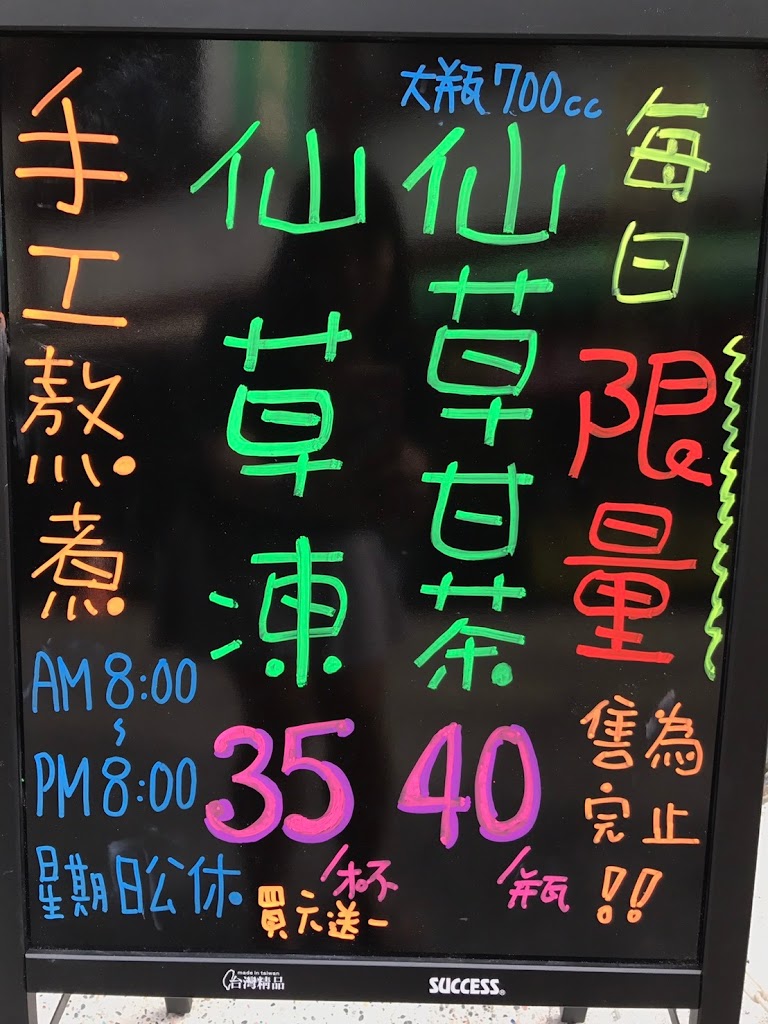 每日限量
售完為止!!
大瓶700cc
仙草甘茶
40/瓶
仙草凍
35/杯
買六送一
手工熬煮
AM 8:00
~
PM 8:00
星期日公休
made in taiwan
台灣精品
SUCCESS®